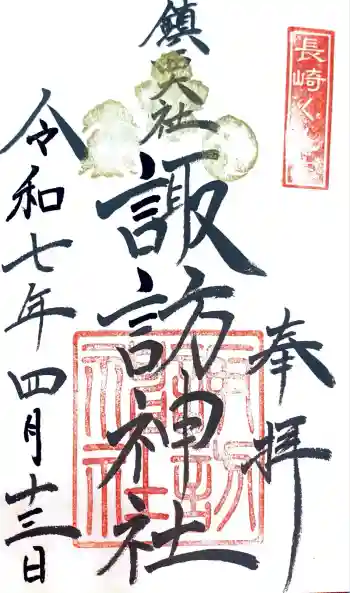 長崎くんち
奉拝
鎮西大社
諏訪神社
諏訪神社
令和七年四月十三日